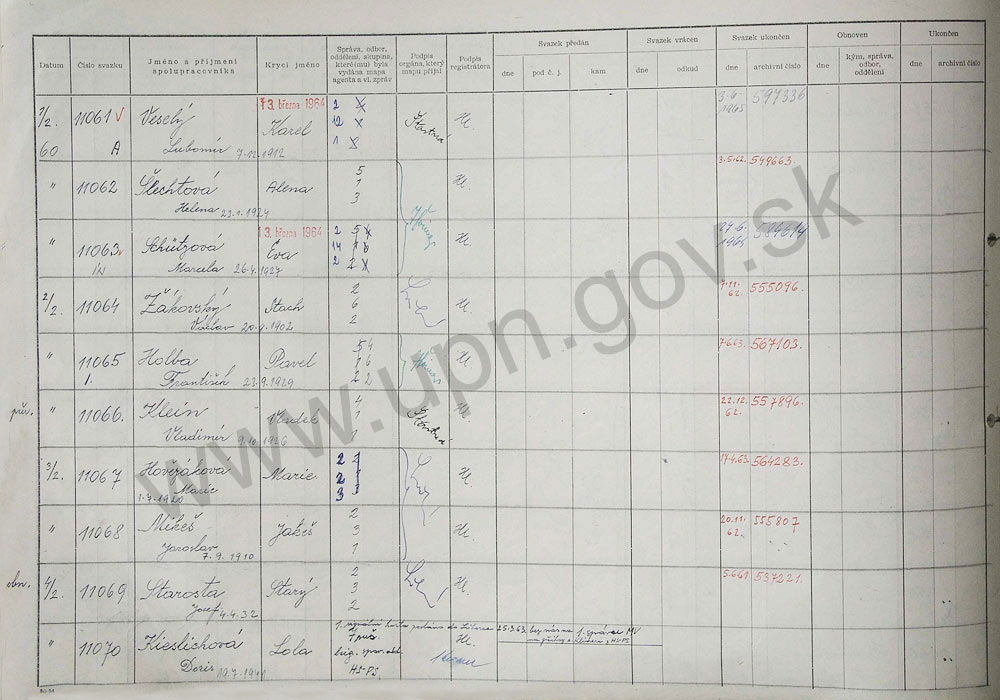 Datum
Číslo svazku
Jméno a příjmení spolupracovníka
Krycí jméno
Správa, odbor, oddělení, skupina, které(mu) byla vydána mapa agenta a vl. zpráv
Podpis orgána, který mapu přijal
Podpis registrátora
Svazek předán
dne
pod č. j.
kam
Svazek vrácen
dne
odkud
Svazek ukončen
dne
archivní číslo
Obnoven
dne
kým, správa, odbor, oddělení
Ukončen
dne
archivní číslo
2. 60
11061 A
Veselý
Lubomír 7.12.1912
13. března 1964
Karel
2
12
1
Hl.
3.6. 1965
597336
" 11062
Šlechtová
Helena 23.1.1924
Alena
5
1
3
Hl.
3.5.62.
549663.
" 11063
Schützová
Marcela 26.4.1927
13. března 1964
Eva
2 5
14
2 2
Hl.
27.6. 1965
2/2. 11064
Žákovský
Václav 1902
Stach
2
6
2
Hl.
7.11. 62.
555096.
" 11065 1.
Holba
František 23.9.1929
Pavel
5 4
1 6
2 2
Hl.
7.6.63.
567103.
přev. " 11066.
Klein
Vladimír 1926
Vladek
4
1
1
Hl.
22.12. 62.
557896.
3/2. 11067
Marie
1.7.1920
Marie
2
2
3
Hl.
17.4.63.
564283.
" 11068
Mikeš
Jaroslav 7.9.1910
Jakeš
2
3
1
Hl.
20.11. 62.
555807
obn. 4/2. 11069
Starosta
Josef 4.4.32
Starý
2
3
2
Hl.
537221.
" 11070
Kieslichová
Doris 19.7.1941
Lola
HS-PS
Hl.
25.3.63. 1. správa MV
SG-54
www.upn.gov.sk